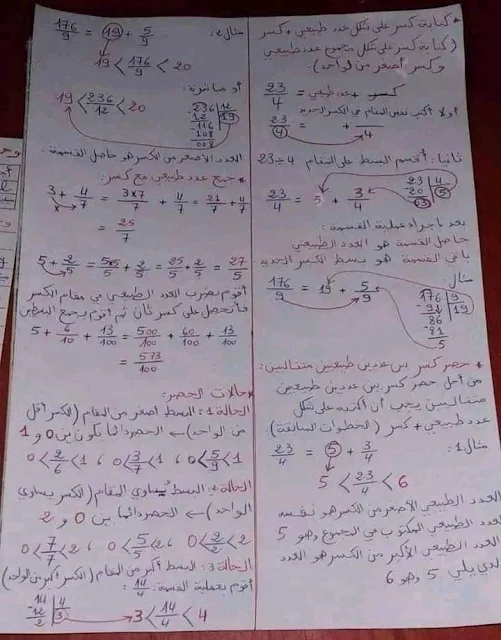 * كتابة كسر على شكل عدد طبيعي + كسر
(كتابة كسر على شكل مجموع عدد طبيعي
وكسر أصغر من الواحد):
23/4 = عدد طبيعي + كسر
أولا أكتب نفس المقام في الكسر الجديد
23/4 = + /4
ثانيا: أقسم البسط على المقام 4÷23
23/4 = 5 + 3/4
23 | 4
-20 | 5
03
بعد إجراء عملية القسمة:
حاصل القسمة هو العدد الطبيعي
باقي القسمة هو بسط الكسر الجديد
مثال:
176/9 = 19 + 5/9
176 | 9
9 | 19
86
-81
5
* حصر كسر بين عددين طبيعيين متتاليين:
من أجل حصر كسر بين عددين طبيعيين
متتاليين يجب أن أكتبه على شكل
عدد طبيعي + كسر (الخطوات السابقة).
مثال 1:
23/4 = 5 + 3/4
5 < 23/4 < 6
العدد الطبيعي الأصغر من الكسر هو نفسه
العدد الطبيعي المكتوب في المجموع وهو 5
العدد الطبيعي الأكبر من الكسر هو العدد
الذي يلي 5 وهو 6
مثال 2:
176/9 = 19 + 5/9
19 < 176/9 < 20
أو مباشرة:
19 < 236/12 < 20
236 | 12
12 | 19
-116
108
008
العدد الأصغر من الكسر هو حاصل القسمة
* جمع عدد طبيعي مع كسر:
3 + 4/7 = 3×7/7 + 4/7 = 21/7 + 4/7
= 25/7
5 + 2/5 = 5×5/5 + 2/5 = 25/5 + 2/5 = 27/5
أقوم بضرب العدد الطبيعي في مقام الكسر
فأتحصل على كسر ثان ثم أقوم بجمع البسطين
5 + 6/10 + 13/100 = 500/100 + 60/100 + 13/100
= 573/100
* حالات الحصر:
الحالة 1: البسط أصغر من المقام (الكسر أقل
من الواحد) ← الحصر دائما يكون بين 0 و 1
0 < 2/6 < 1 ، 0 < 3/7 < 1 ، 0 < 5/9 < 1
الحالة 2: البسط يساوي المقام (الكسر يساوي
الواحد) ← الحصر دائما بين 0 و 2
0 < 7/7 < 2 ، 0 < 5/5 < 2 ، 0 < 2/2 < 2
الحالة 3: البسط أكبر من المقام (الكسر أكبر من الواحد)
أقوم بعملية القسمة: 14/4:
14 | 4
12 | 3
2
3 < 14/4 < 4